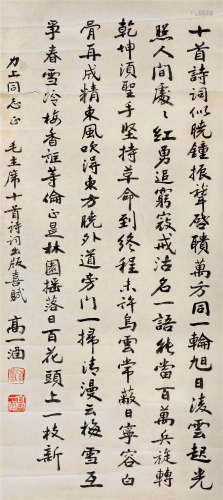 十首詩詞似曉鍾振聾啓聵萬方同一輪旭日凌雲起光
照人間處々紅勇追窮寇戒沽名一語能當百萬兵旋轉
乾坤須聖手堅持革命到終程未許烏雲常蔽日寧容白
骨再成精東風吹得東方曉外道旁門一掃清漫云梅雪互
爭春雪冷梅香誰等倫正是林園搖落日百花頭上一枝新
力上同志正 毛主席十首詩詞出版喜賦 高一涵